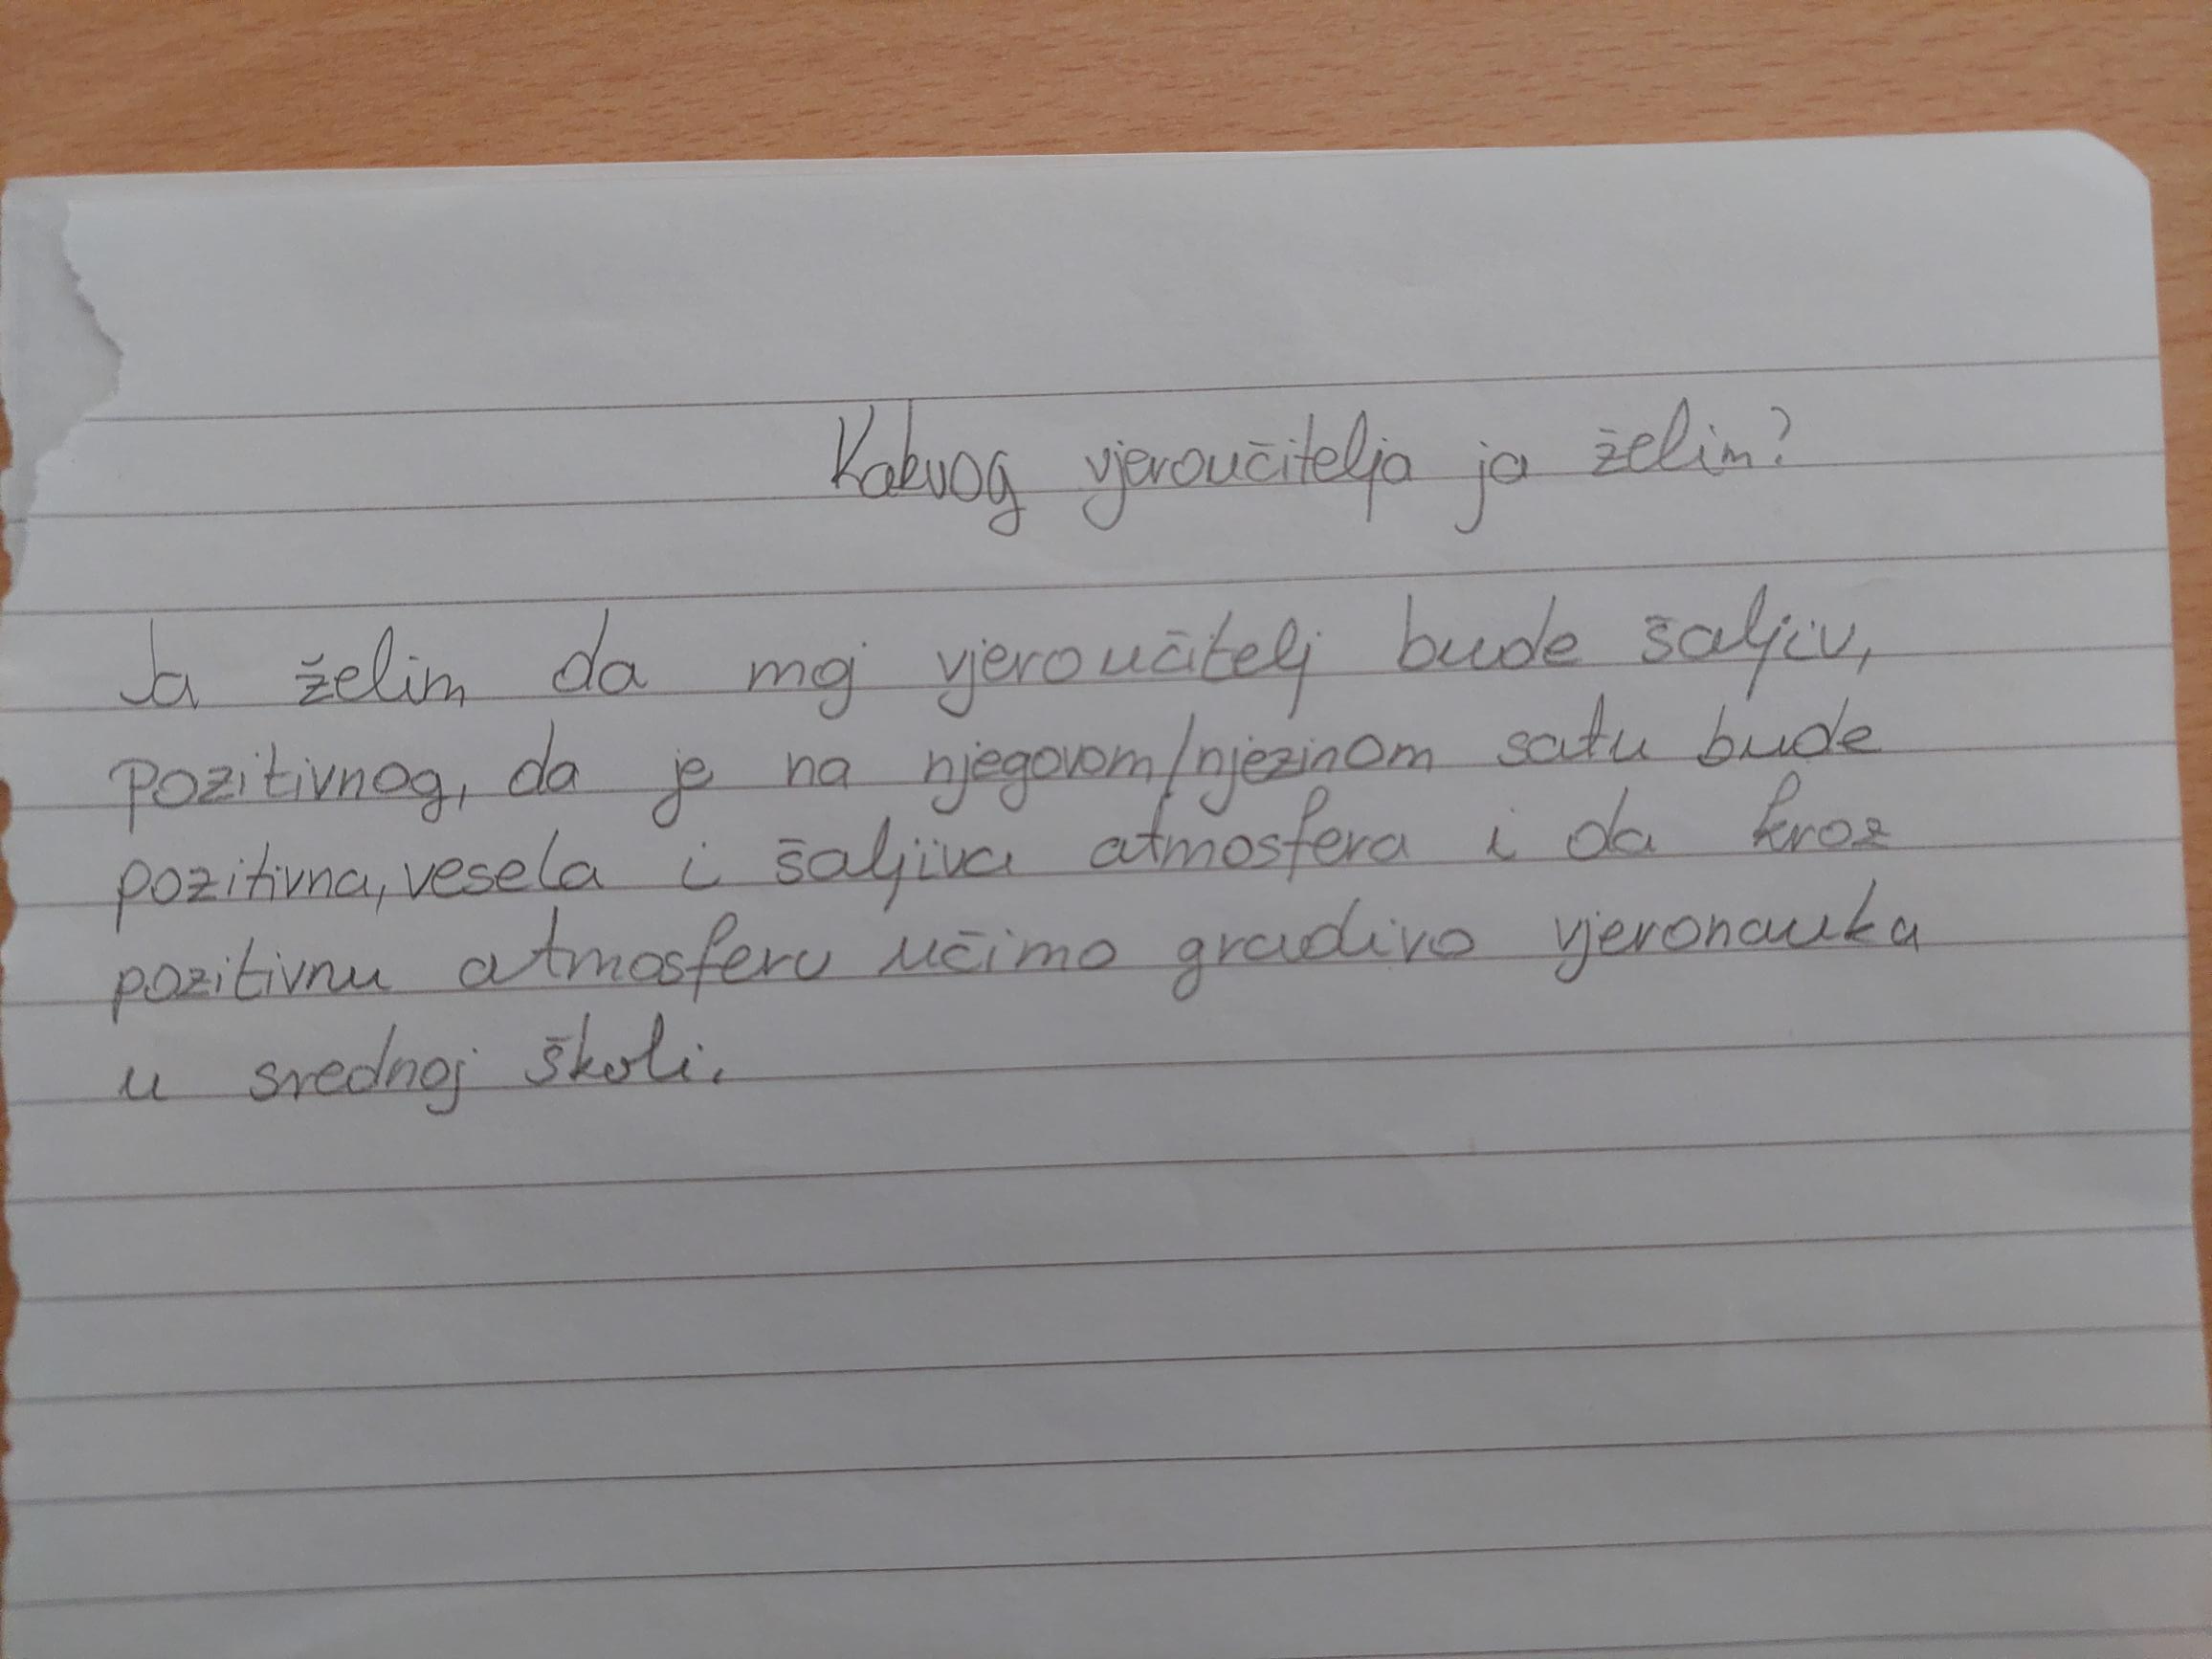 Kakvog vjeroučitelja ja želim?
Ja želim da moj vjeroučitelj bude šaljiv,
pozitivnog, da je na njegovom/njezinom satu bude
pozitivna, vesela i šaljiva atmosfera i da kroz
pozitivnu atmosferu učimo gradivo vjeronauka
u srednoj školi.